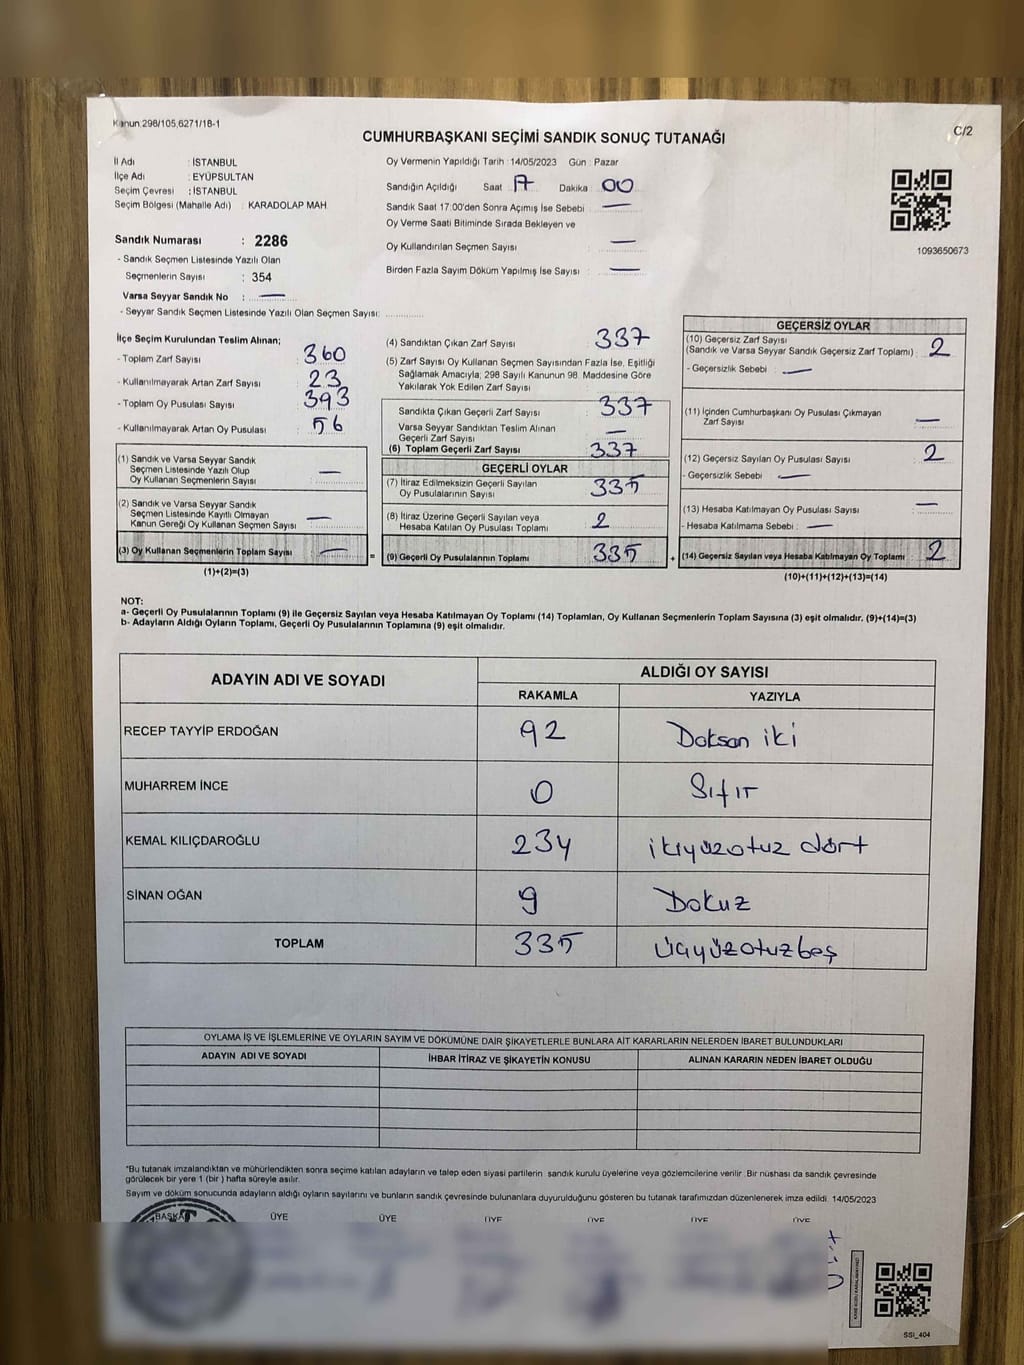 Kanun 298/105,6271/18-1
C/2
CUMHURBAŞKANI SEÇİMİ SANDIK SONUÇ TUTANAĞI
İl Adı : İSTANBUL
İlçe Adı : EYÜPSULTAN
Seçim Çevresi : İSTANBUL
Seçim Bölgesi (Mahalle Adı) : KARADOLAP MAH.
Sandık Numarası : 2286
- Sandık Seçmen Listesinde Yazılı Olan
Seçmenlerin Sayısı : 354
Varsa Seyyar Sandık No : —
- Seyyar Sandık Seçmen Listesinde Yazılı Olan Seçmen Sayısı: ..............
Oy Vermenin Yapıldığı Tarih : 14/05/2023 Gün : Pazar
Sandığın Açıldığı Saat 17 Dakika 00
Sandık Saat 17:00'den Sonra Açımış İse Sebebi : —
Oy Verme Saati Bitiminde Sırada Bekleyen ve
Oy Kullandırılan Seçmen Sayısı : —
Birden Fazla Sayım Döküm Yapılmış İse Sayısı : —
1093650673
İlçe Seçim Kurulundan Teslim Alınan;
- Toplam Zarf Sayısı : 360
- Kullanılmayarak Artan Zarf Sayısı : 23
- Toplam Oy Pusulası Sayısı : 393
- Kullanılmayarak Artan Oy Pusulası : 56
(1) Sandık ve Varsa Seyyar Sandık
Seçmen Listesinde Yazılı Olup
Oy Kullanan Seçmenlerin Sayısı : —
(2) Sandık ve Varsa Seyyar Sandık
Seçmen Listesinde Kayıtlı Olmayan
Kanun Gereği Oy Kullanan Seçmen Sayısı : —
(3) Oy Kullanan Seçmenlerin Toplam Sayısı : —
(1)+(2)=(3)
=
(4) Sandıktan Çıkan Zarf Sayısı : 337
(5) Zarf Sayısı Oy Kullanan Seçmen Sayısından Fazla İse, Eşitliği
Sağlamak Amacıyla; 298 Sayılı Kanunun 98. Maddesine Göre
Yakılarak Yok Edilen Zarf Sayısı :
Sandıkta Çıkan Geçerli Zarf Sayısı : 337
Varsa Seyyar Sandıktan Teslim Alınan
Geçerli Zarf Sayısı : —
(6) Toplam Geçerli Zarf Sayısı : 337
GEÇERLİ OYLAR
(7) İtiraz Edilmeksizin Geçerli Sayılan
Oy Pusulalarının Sayısı : 335
(8) İtiraz Üzerine Geçerli Sayılan veya
Hesaba Katılan Oy Pusulası Toplamı : 2
(9) Geçerli Oy Pusulalarının Toplamı : 335
+
GEÇERSİZ OYLAR
(10) Geçersiz Zarf Sayısı
(Sandık ve Varsa Seyyar Sandık Geçersiz Zarf Toplamı) : 2
- Geçersizlik Sebebi : —
(11) İçinden Cumhurbaşkanı Oy Pusulası Çıkmayan
Zarf Sayısı : —
(12) Geçersiz Sayılan Oy Pusulası Sayısı : 2
- Geçersizlik Sebebi : —
(13) Hesaba Katılmayan Oy Pusulası Sayısı : —
- Hesaba Katılmama Sebebi : —
(14) Geçersiz Sayılan veya Hesaba Katılmayan Oy Toplamı : 2
(10)+(11)+(12)+(13)=(14)
NOT:
a- Geçerli Oy Pusulalarının Toplamı (9) ile Geçersiz Sayılan veya Hesaba Katılmayan Oy Toplamı (14) Toplamları, Oy Kullanan Seçmenlerin Toplam Sayısına (3) eşit olmalıdır. (9)+(14)=(3)
b- Adayların Aldığı Oyların Toplamı, Geçerli Oy Pusulalarının Toplamına (9) eşit olmalıdır.
ADAYIN ADI VE SOYADI ALDIĞI OY SAYISI
RAKAMLA YAZIYLA
RECEP TAYYİP ERDOĞAN 92 Doksan iki
MUHARREM İNCE 0 Sıfır
KEMAL KILIÇDAROĞLU 234 ikiyüzotuz dört
SİNAN OĞAN 9 Dokuz
TOPLAM 335 üçyüzotuzbeş
OYLAMA İŞ VE İŞLEMLERİNE VE OYLARIN SAYIM VE DÖKÜMÜNE DAİR ŞİKAYETLERLE BUNLARA AİT KARARLARIN NELERDEN İBARET BULUNDUKLARI
ADAYIN ADI VE SOYADI İHBAR İTİRAZ VE ŞİKAYETİN KONUSU ALINAN KARARIN NEDEN İBARET OLDUĞU
*Bu tutanak imzalandıktan ve mühürlendikten sonra seçime katılan adayların ve talep eden siyasi partilerin sandık kurulu üyelerine veya gözlemcilerine verilir. Bir nüshası da sandık çevresinde
görülecek bir yere 1 (bir) hafta süreyle asılır.
Sayım ve döküm sonucunda adayların aldığı oyların sayılarını ve bunların sandık çevresinde bulunanlara duyurulduğunu gösteren bu tutanak tarafımızdan düzenlenerek imza edildi. 14/05/2023
BAŞKAN ÜYE ÜYE ÜYE ÜYE ÜYE ÜYE
SSI_404